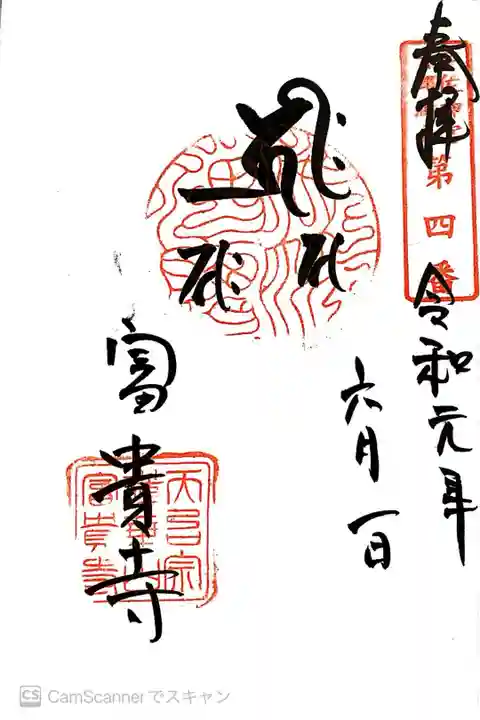 奉拝
第四番
令和元年
六月一日
富貴寺
天台宗
蓮華山
富貴寺
CS CamScannerでスキャン